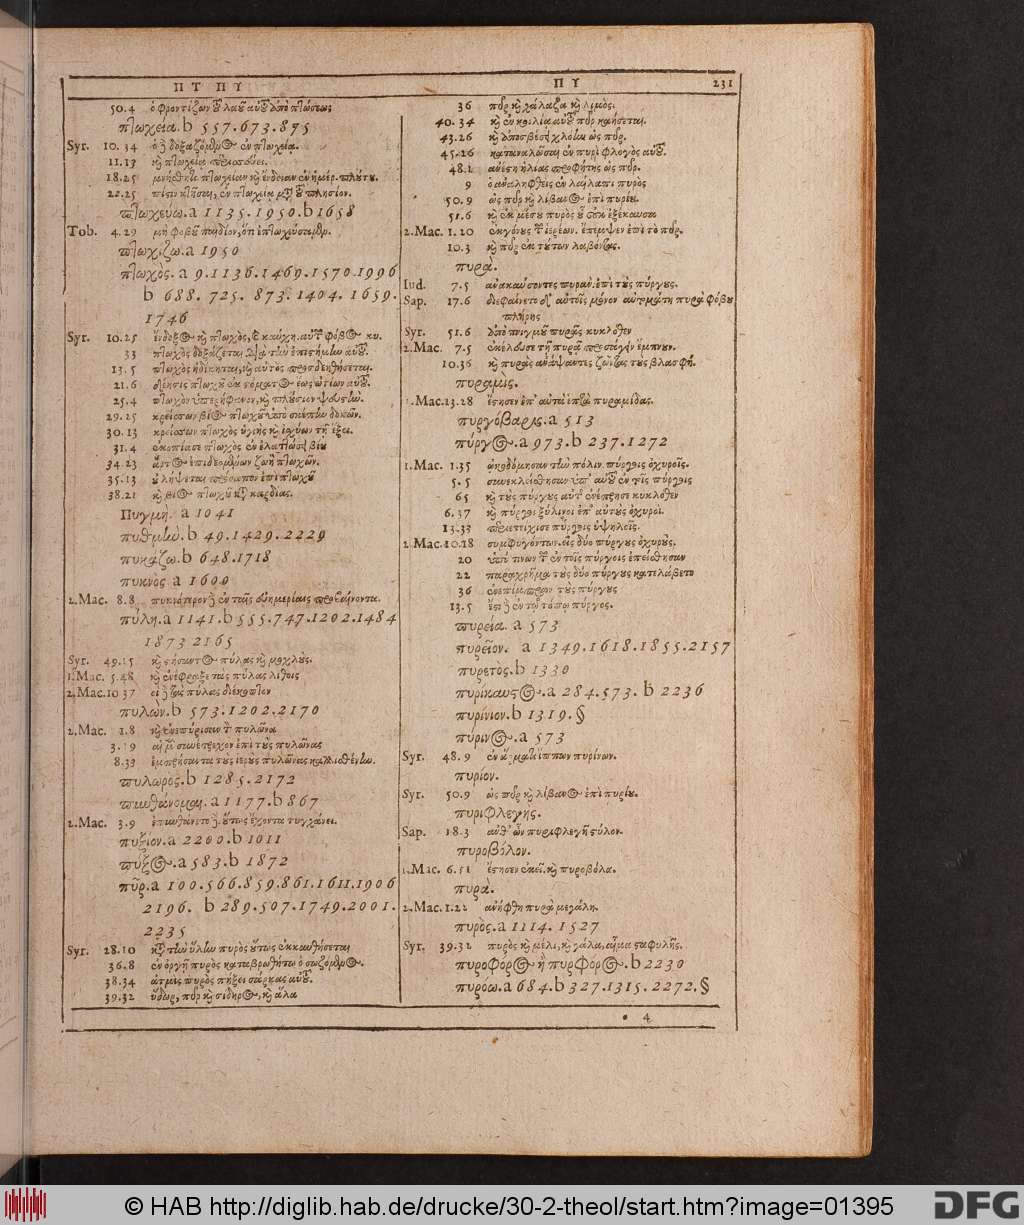 Π Τ Π Υ
50.4 ὁ φροντίζων τοῦ λαοῦ αὐτοῦ ἀπὸ πτώσεως
πτωχεία.b 557.673.875
Syr. 10.34 ὁ δὲ δοξαζόμενος ἐν πτωχείᾳ.
11.13 καὶ πτωχείᾳ περισσεύει.
18.25 μνήσθητι πτωχείαν καὶ ἔνδειαν ἐν ἡμέρ. πλούτου.
22.25 πίστιν κτῆσαι, ἐν πτωχείᾳ μετὰ τοῦ πλησίον.
πτωχεύω.a 1135.1950.b1658
Tob. 4.29 μὴ φοβοῦ παιδίον, ὅτι ἐπτωχεύσαμεν.
πτωχίζω.a 1950
πτωχὸς.a 9.1136.1469.1570.1996
b 688. 725. 873. 1404. 1659.
1746
Syr. 10.25 ἔνδοξος καὶ πτωχὸς, τὸ καύχη. αὐτῶν φόβος κυ.
33 πτωχὸς δοξάζεται διὰ τὴν ἐπιστήμην αὐτοῦ.
13.5 πτωχὸς ἠδίκηται, καὶ αὐτὸς προσδεηθήσεται.
21.6 δέησις πτωχοῦ ἐκ στόματος ἕως ὠτίων αὐτοῦ.
25.4 πτωχὸν ὑπερήφανον, καὶ πλούσιον ψεύστην.
29.25 κρείσσων βίος πτωχοῦ ὑπὸ σκέπην δοκῶν.
30.13 κρείσσων πτωχὸς ὑγιὴς καὶ ἰσχύων τῇ ἕξει.
31.4 ἐκοπίασε πτωχὸς ἐν ἐλαττώσει βίου
34.23 ἄρτος ἐπιδεομένων ζωὴ πτωχῶν.
35.13 οὐ λήψεται πρόσωπον ἐπὶ πτωχοῦ
38.21 καὶ βίος πτωχοῦ κατὰ καρδίας.
Πυγμή. a 1041
πυθμὴν.b 49.1429.2229
πυκάζω.b 648.1718
πυκνὸς a 1600
2.Mac. 8.8 πυκνότερον δὲ ἐν ταῖς εὐημερίαις προβαίνοντα.
πύλη.a 1141.b555.747.1202.1484
1873 2165
Syr. 49.15 καὶ στήσαντος πύλας καὶ μοχλούς.
1.Mac. 5.48 καὶ ἐνέφραξε τὰς πύλας λίθοις
2.Mac.10 37 οἱ δὲ τὰς πύλας διέκοπτον
πυλὼν.b 573.1202.2170
2.Mac. 1.8 καὶ ἐνεπύρισαν τὸν πυλῶνα
3.19 αἱ μὲν συνέτρεχον ἐπὶ τοὺς πυλῶνας
8.33 ἐμπρήσαντα τοὺς ἱεροὺς πυλῶνας καλλισθένην.
πυλωρος.b 1285.2172
πυνθάνομαι.a1177.b867
2.Mac. 3.9 ἐπυνθάνετο δὲ. οὕτως ἔχοντα τυγχάνει.
πυξίον.a 2200.b1011
πύξος.a583.b 1872
πῦρ.a 100.566.859.861.1611.1906
2196. b 289.507.1749.2001.
2235
Syr. 28.10 κατὰ τὴν ὕλην πυρὸς οὕτως ἐκκαυθήσεται
36.8 ἐν ὀργῇ πυρὸς καταβρωθήτω ὁ σωζόμενος.
38.34 ἀτμὶς πυρὸς πήξει σάρκας αὐτοῦ.
39.32 ὕδωρ, πῦρ καὶ σίδηρος, καὶ ἅλα
Π Υ
231
36 πῦρ καὶ χάλαζα καὶ λιμὸς.
40.34 καὶ ἐν κοιλίᾳ αὐτοῦ πῦρ καήσεται.
43.26 καὶ ἀποσβέσει χλόην ὡς πῦρ.
45.26 καταναλῶσαι ἐν πυρὶ φλογὸς αὐτοῦ.
48.1 ἀνέστη ἠλίας προφήτης ὡς πῦρ.
9 ὁ ἀναληφθεὶς ἐν λαίλαπι πυρὸς
50.9 ὡς πῦρ καὶ λίβανος ἐπὶ πυρείου.
51.6 καὶ ἐκ μέσου πυρὸς οὗ οὐκ ἐξέκαυσα
2.Mac. 1.20 ἐκγόνους τῶν ἱερέων. ἔπεμψεν ἐπὶ τὸ πῦρ.
10.3 καὶ πῦρ ἐκ τούτων λαβόντες.
πυρὰ.
Iud. 7.5 ἀνακαύσοντες πυρὰς. ἐπὶ τοὺς πύργους.
Sap. 17.6 διεφαίνετο δ' αὐτοῖς μόνον αὐτομάτη πυρὰ φόβου
πλήρης
Syr. 51.6 ἀπὸ πνιγμοῦ πυρᾶς κυκλόθεν
2.Mac. 7.5 ἐκέλευσε τῇ πυρᾷ προσάγειν ἔμπνουν.
10.36 καὶ πυρὰς ἀνάψαντες ζῶντας τοὺς βλασφή.
πυραμὶς.
1.Mac.13.28 ἔστησεν ἐπ' αὐτὰ ἑπτὰ πυραμίδας.
πυργόβαρις.a 513
πύργος.a973.b 237.1272
1.Mac. 1.35 ᾠκοδόμησαν τὴν πόλιν. πύργοις ὀχυροῖς.
5.5 συνεκλείσθησαν ὑπ' αὐτοῦ ἐν τοῖς πύργοις
65 καὶ τοὺς πύργους αὐτῶν ἐνέπρησε κυκλόθεν
6.37 καὶ πύργοι ξύλινοι ἐπ' αὐτοὺς ὀχυροὶ.
13.33 περιετείχισε πύργοις ὑψηλοῖς.
2.Mac.10.18 συμφυγόντων. εἰς δύο πύργους ὀχυροὺς.
20 ὑπό τινων τῶν ἐν τοῖς πύργοις ἐπείσθησαν
22 παραχρῆμα τοὺς δύο πύργους κατελάβετο
36 ἐνεπίμπρων τοὺς πύργους
13.5 ἔστι δὲ ἐν τῷ τόπῳ πύργος.
πυρεία. a 573
πυρεῖον. a 1349.1618.1855.2157
πυρετὸς.b 1330
πυρίκαυστος.a 284.573. b 2236
πυρίνιον.b 1319.§
πύρινος.a 573
Syr. 48.9 ἐν ἅρματι ἵππων πυρίνων.
πυρίον.
Syr. 50.9 ὡς πῦρ καὶ λίβανος ἐπὶ πυρίου.
πυριφλεγής.
Sap. 18.3 ἀνθ' ὧν πυριφλεγῆ στύλον.
πυροβόλον.
1.Mac. 6.51 ἔστησεν ἐκεῖ. καὶ πυροβόλα.
πυρὰ.
2.Mac.1.22 ἀνήφθη πυρὰ μεγάλη.
πυρὸς.a1114. 1527
Syr. 39.32 πυρὸς καὶ μέλι, καὶ γάλα, αἷμα σταφυλῆς.
πυροφόρος ἢ πυρφόρος.b2230
πυρόω.a684.b327.1315.2272.§
* 4
© HAB http://diglib.hab.de/drucke/30-2-theol/start.htm?image=01395
DFG